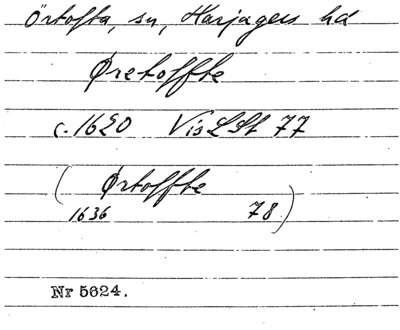 Örtofta, sn, Harjagers hd
Øretoffte
c. 1620 VisLSt 77
(Ørtoffte
1636 78)
Nr 5624.